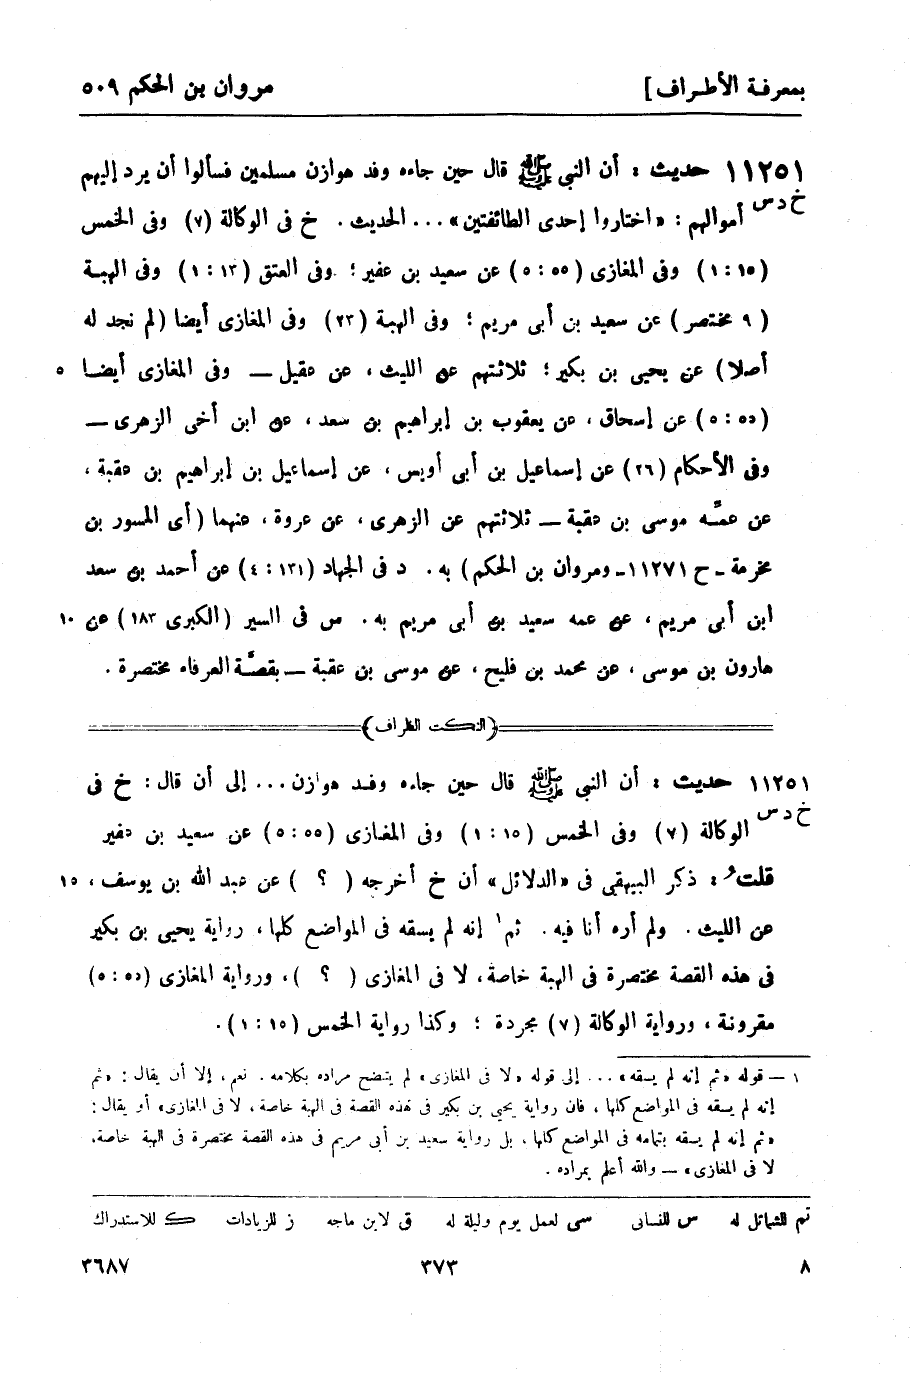 بمعرفة الأطراف] مروان بن الحكم ٥٠٩
١١٢٥١ حديث : أن النبى ﷺ قال حين جاءه وفد هوازن مسلمين فسألوا أن يرد إليهم
خ د س أموالهم : «اختاروا إحدى الطائفتين» ... الحديث . خ فى الوكالة (٧) وفى الخمس
(١٥ : ١) وفى المغازى (٥٥ : ٥) عن سعيد بن عفير ؛ وفى العتق (١٣ : ١) وفى الهبة
(٩ مختصر) عن سعيد بن أبى مريم ؛ وفى الهبة (٢٣) وفى المغازى أيضا (لم نجد له
أصلا) عن يحيى بن بكير ؛ ثلاثتهم عن الليث ، عن عقيل ـــ وفى المغازى أيضا ٥
(٥٥ : ٥) عن إسحاق ، عن يعقوب بن إبراهيم بن سعد ، عن ابن أخى الزهرى ـــ
وفى الأحكام (٢٦) عن إسماعيل بن أبى أويس ، عن إسماعيل بن إبراهيم بن عقبة ،
عن عمّه موسى بن عقبة ـــ ثلاثتهم عن الزهرى ، عن عروة ، عنهما (أى المسور بن
مخرمة ـ ح ١١٢٧١ ـ ومروان بن الحكم) به . د فى الجهاد (١٣١ : ٤) عن أحمد بن سعد
ابن أبى مريم ، عن عمه سعيد بن أبى مريم به . س فى السير (الكبرى ١٨٣) عن ١٠
هارون بن موسى ، عن محمد بن فليح ، عن موسى بن عقبة ـــ بقصّة العرفاء مختصرة .
(النكت الظراف)
١١٢٥١ حديث : أن النبى ﷺ قال حين جاءه وفد هوازن ... إلى أن قال : خ فى
خ د س الوكالة (٧) وفى الخمس (١٥ : ١) وفى المغازى (٥٥ : ٥) عن سعيد بن عفير
قلتُ : ذكر البيهقى فى «الدلائل» أن خ أخرجه ( ؟ ) عن عبد الله بن يوسف ، ١٥
عن الليث . ولم أره أنا فيه . ثم١ إنه لم يسقه فى المواضع كلها ، رواية يحيى بن بكير
فى هذه القصة مختصرة فى الهبة خاصة ، لا فى المغازى ( ؟ ) ، ورواية المغازى (٥٥ : ٥)
مقرونة ، ورواية الوكالة (٧) مجردة ؛ وكذا رواية الخمس (١٥ : ١) .
١ ـــ قوله «ثم إنه لم يسقه» ... إلى قوله «لا فى المغازى» لم يتضح مراده بكلامه . نعم ، إلا أن يقال : «ثم
إنه لم يسقه فى المواضع كلها ، فان رواية يحيى بن بكير فى هذه القصة فى الهبة خاصة ، لا فى المغازى» أو يقال :
«ثم إنه لم يسقه بتمامه فى المواضع كلها ، بل رواية سعيد بن أبى مريم فى هذه القصة مختصرة فى الهبة خاصة ،
لا فى المغازى» ـــ والله أعلم بمراده .
تم للشمائل له س للنسائى سى لعمل يوم وليلة له ق لابن ماجه ز للزيادات ك للاستدراك
٨ ٣٧٣ ٣٦٨٧